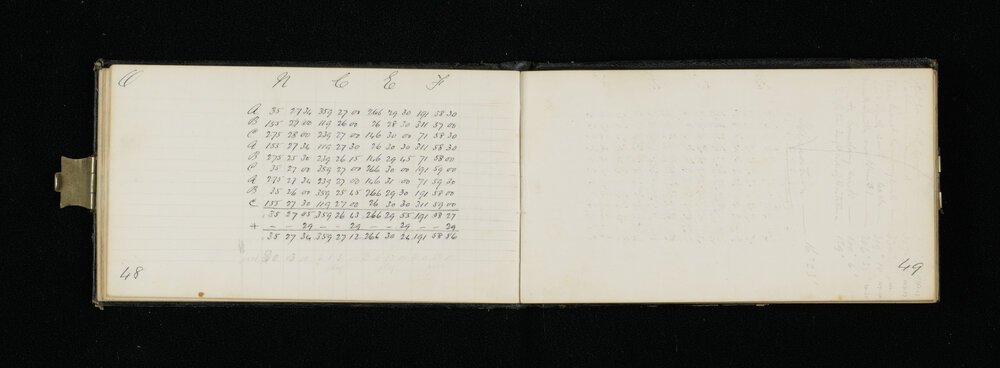 N C E F
A 35 27 34 359 27 00 266 29 30 191 58 30
B 155 27 00 119 26 00 26 28 30 311 57 00
C 275 28 00 239 27 00 146 30 00 71 58 30
A 155 27 34 119 27 30 26 30 30 311 58 30
B 275 25 30 239 26 15 146 29 45 71 58 00
C 35 27 00 359 27 00 266 30 00 191 59 00
A 275 27 34 239 27 00 146 31 00 71 59 30
B 35 26 00 359 25 45 266 29 30 191 58 00
C 155 27 30 119 27 00 26 30 30 311 59 00
35 27 05 359 26 43 266 29 55 191 58 27
+ - - 29 - - 29 - - 29 - - 29
35 27 34 359 27 12 266 30 24 191 58 56
48
49